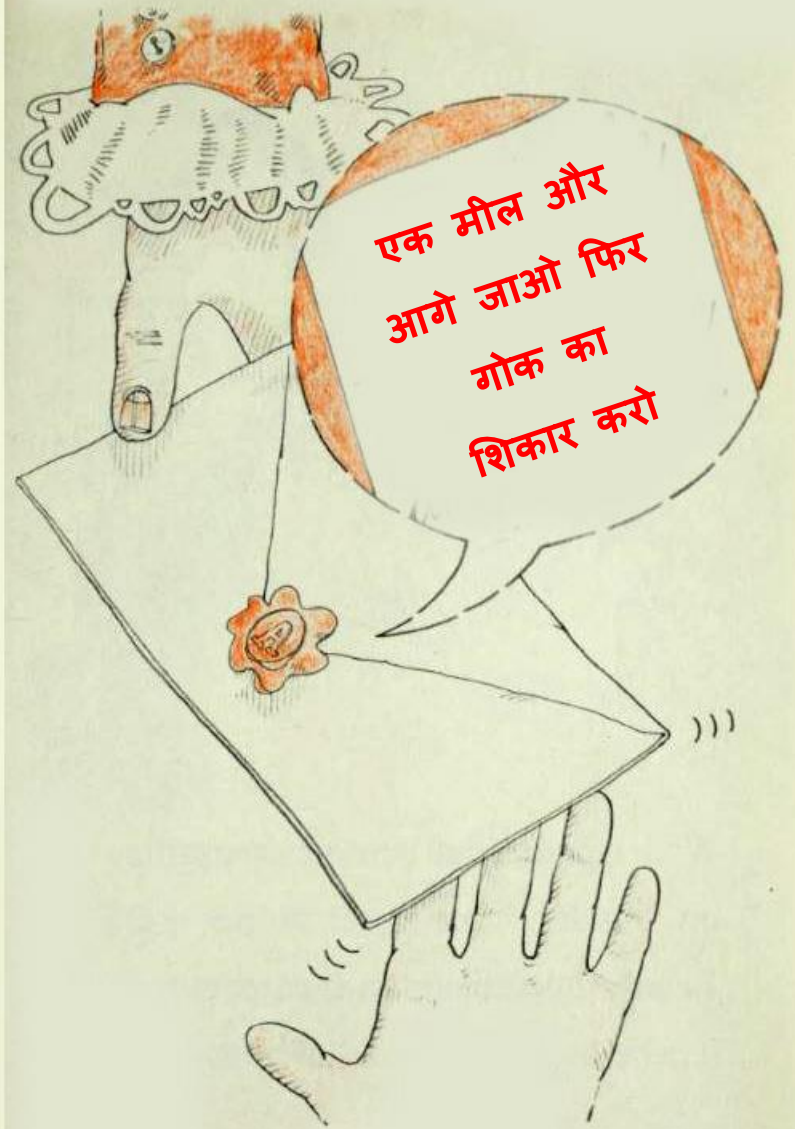 एक मील और
आगे जाओ फिर
गोक का
शिकार करो